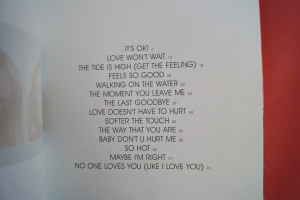 IT'S OK!
LOVE WON'T WAIT
THE TIDE IS HIGH (GET THE FEELING)
FEELS SO GOOD
WALKING ON THE WATER
THE MOMENT YOU LEAVE ME
THE LAST GOODBYE
LOVE DOESN'T HAVE TO HURT
SOFTER THE TOUCH
THE WAY THAT YOU ARE
BABY DON'T U HURT ME
SO HOT
MAYBE I'M RIGHT
NO ONE LOVES YOU (LIKE I LOVE YOU)